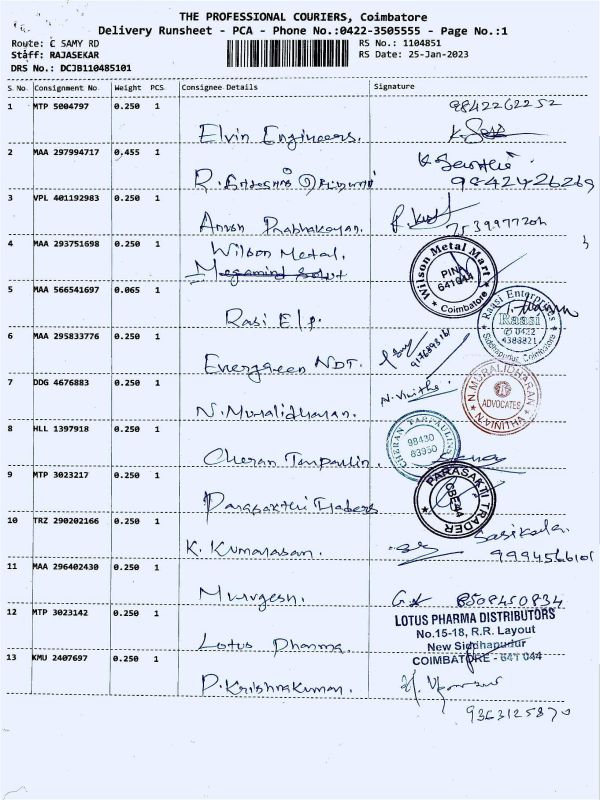 THE PROFESSIONAL COURIERS, Coimbatore
Delivery Runsheet - PCA - Phone No.:0422-3505555 - Page No.:1
Route: C SAMY RD
RS No.: 1104851
Staff: RAJASEKAR
RS Date: 25-Jan-2023
DRS No.: DCJB110485101
S. No Consignment No. Weight PCS Consignee Details Signature
1 MTP 5004797 0.250 1
9842262252
Elvin Engineers.
2 MAA 297994717 0.455 1
9842426269
3 VPL 401192983 0.250 1
Arun Prabhakaran.
4 MAA 293751698 0.250 1
Wilson Metal.
Wilson Metal Mart
PIN
641044
Coimbatore
5 MAA 566541697 0.065 1
Rasi E/p.
Raasi Enterprises
Raasi
0422
4388821
Siddhapudur, Coimbatore
6 MAA 295833776 0.250 1
Evergreen NDT.
7 DDG 4676883 0.250 1
N. Vinitha.
N. Muralidharan.
N.MURALIDHARAN
ADVOCATES
N.VINITHA
8 HLL 1397918 0.250 1
Cheran Tarpaulin
CHERAN TARPAULINS
98430
83950
9 MTP 3023217 0.250 1
Parasakthi Traders
PARASAKTI TRADER
CBE-44
10 TRZ 290202166 0.250 1
K. Kumarasan.
Sasikala.
9994566101
11 MAA 296402430 0.250 1
Murugesh.
8508450834
12 MTP 3023142 0.250 1
Lotus Pharma.
LOTUS PHARMA DISTRIBUTORS
No.15-18, R.R. Layout
New Siddhapudur
COIMBATORE - 641 044
13 KMU 2407697 0.250 1
P. Krishnakumar.
9363125870